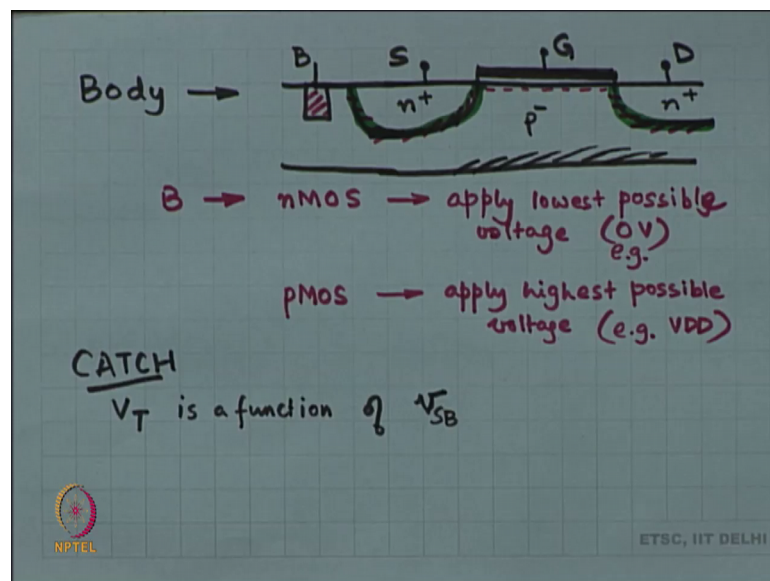 B S G D
Body → n+ p- n+
B → nMOS → apply lowest possible
voltage (0V)
e.g.
pMOS → apply highest possible
voltage (e.g. VDD)
CATCH
VT is a function of VSB
NPTEL
ETSC, IIT DELHI